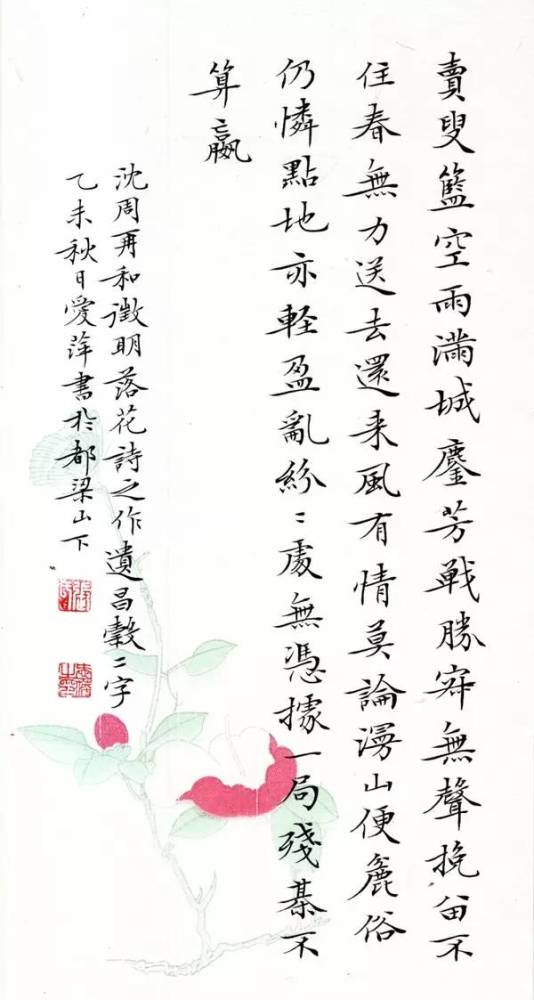 賣叟籃空雨滿城鏖芳戰勝寂無聲挽留不
住春無力送去還来風有情莫論漫山便麁俗
仍憐點地亦軽盈亂紛〻處無憑據一局殘棊不
算贏
沈周再和徵明落花詩之作遺昌穀二字
乙未秋日愛萍書於都梁山下